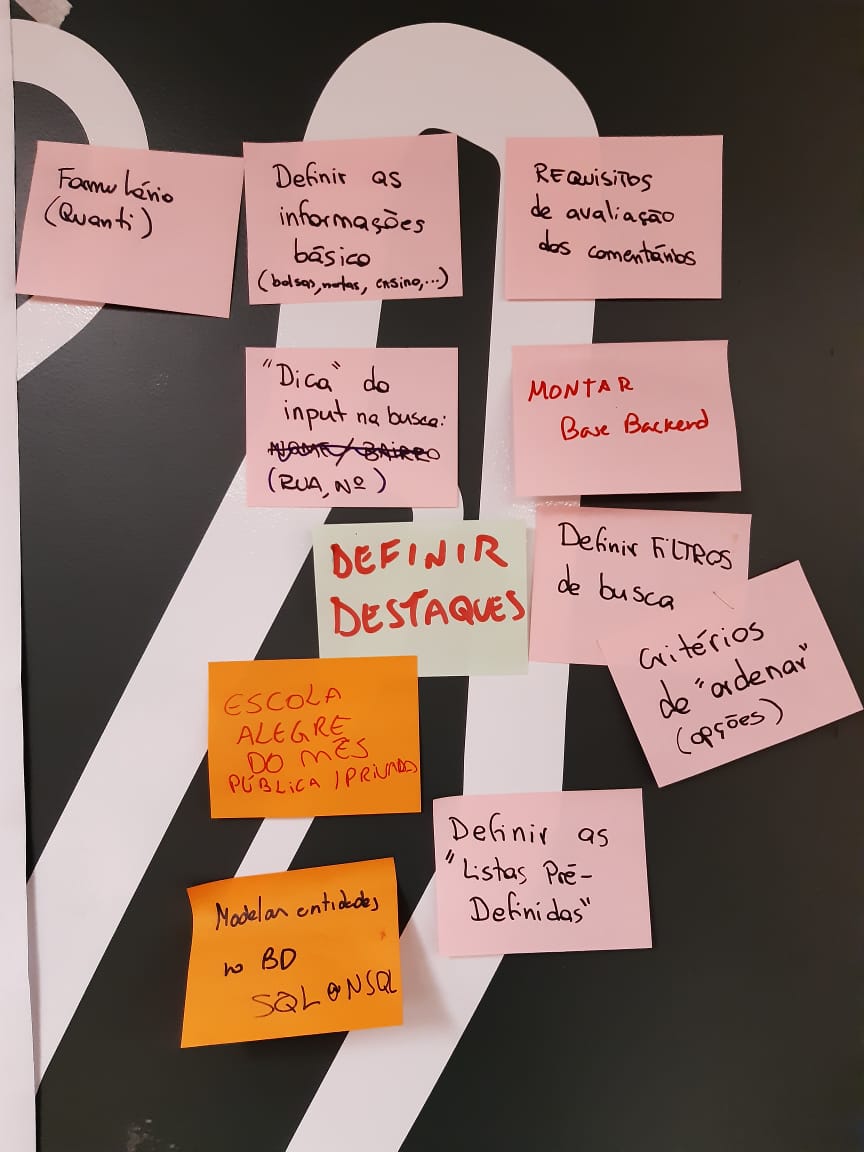 Formulário
(Quanti)
Definir as
informações
básico
(bolsas, notas, ensino,...)
REQUISITOS
de avaliação
dos comentários
"Dica" do
input na busca:
NOME/BAIRRO
(RUA, Nº)
MONTAR
Base Backend
DEFINIR
DESTAQUES
Definir FILTROS
de busca
Critérios
de "ordenar"
(opções)
ESCOLA
ALEGRE
DO MÊS
PÚBLICA / PRIVADA
Definir as
"Listas Pré-
Definidas"
Modelar entidades
no BD
SQL NSQL